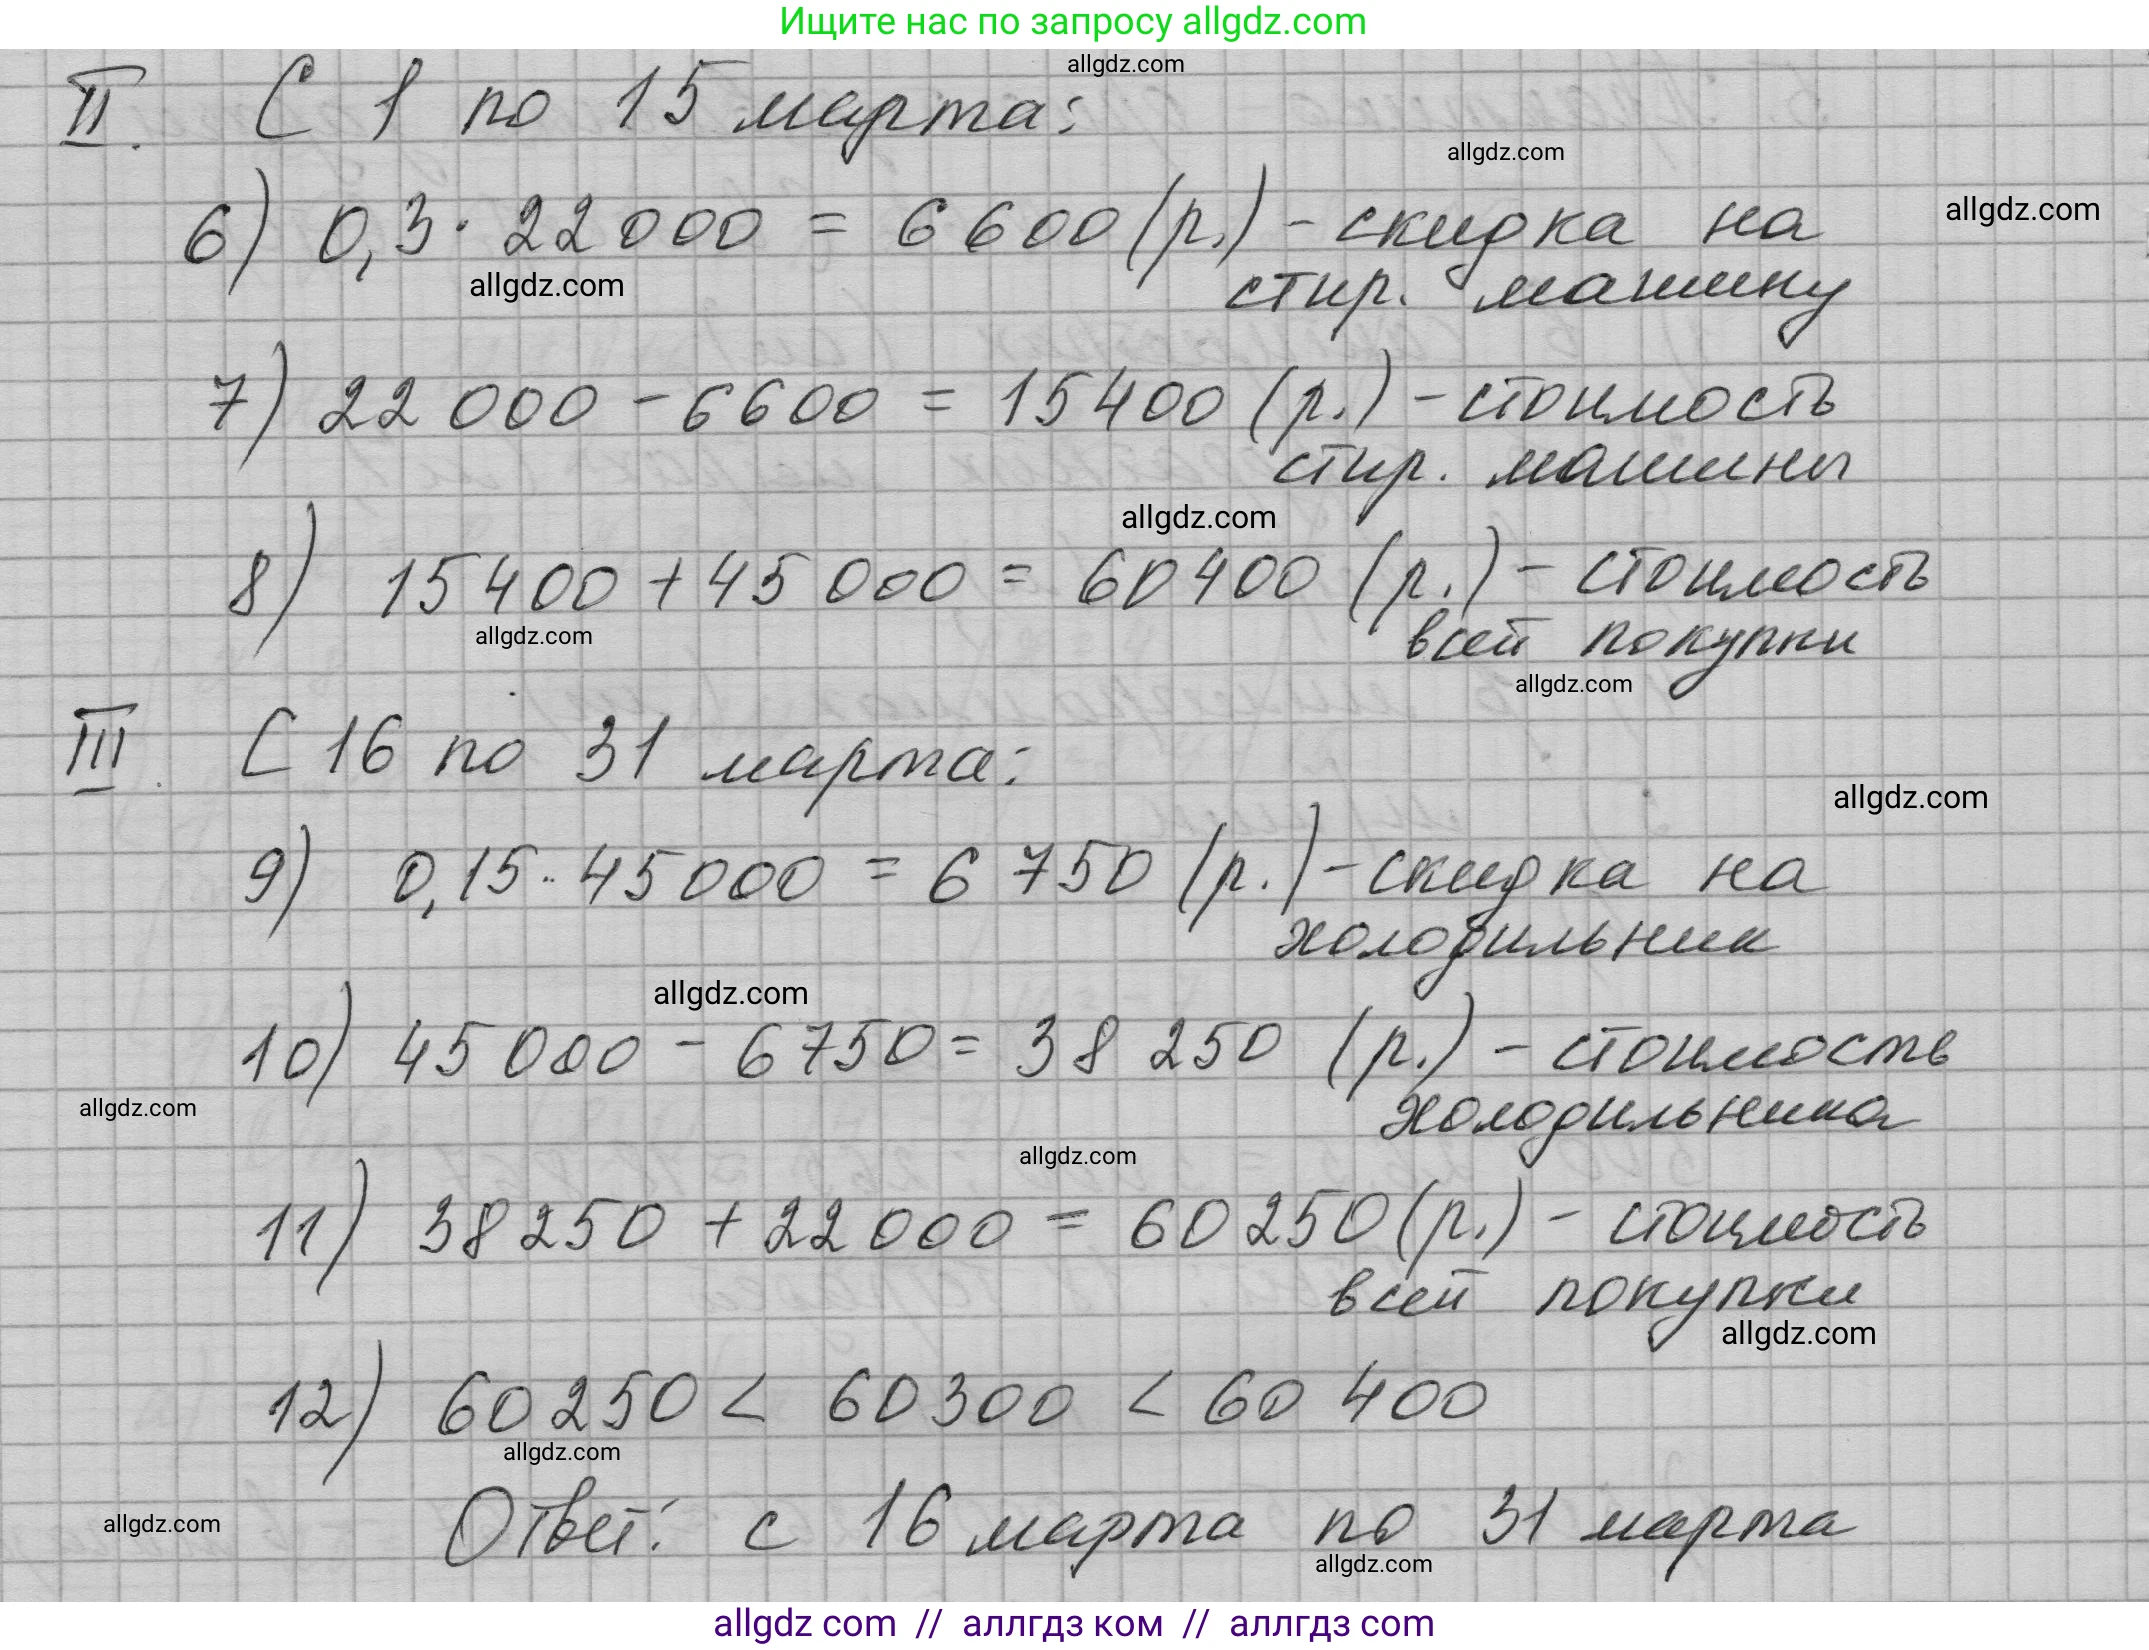 Ищите нас по запросу allgdz.com
allgdz.com
II. С 1 по 15 марта:
allgdz.com
6) 0,3 · 22000 = 6600 (р.) - скидка на
allgdz.com
allgdz.com
стир. машину
7) 22 000 - 6600 = 15400 (р.) - стоимость
стир. машины
allgdz.com
8) 15400 + 45 000 = 60400 (р.) - стоимость
allgdz.com
всей покупки
allgdz.com
III. С 16 по 31 марта:
allgdz.com
9) 0,15 · 45000 = 6 750 (р.) - скидка на
холодильник
allgdz.com
10) 45 000 - 6750 = 38 250 (р.) - стоимость
allgdz.com
холодильника
allgdz.com
11) 38250 + 22 000 = 60250 (р.) - стоимость
всей покупки
allgdz.com
12) 60250 < 60300 < 60 400
allgdz.com
Ответ: с 16 марта по 31 марта
allgdz.com
allgdz.com
allgdz com // аллгдз ком // аллгдз com